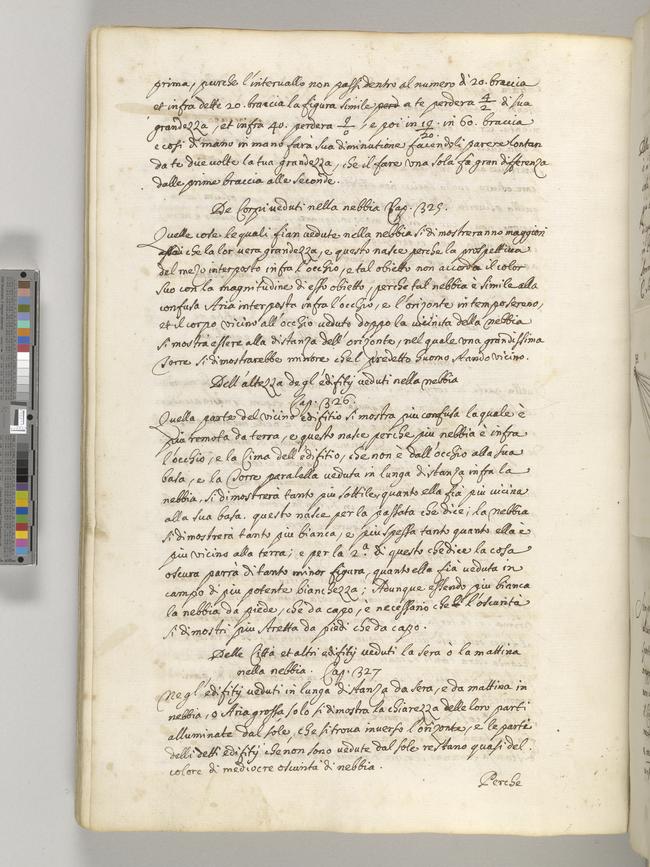 prima, purche l'intervallo non passi dentro al numero di 20. braccia
et infra dette 20. braccia la figura simile a te perdera 4/2 di sua
grandezza, et infra 40. perdera 9/0, e poi in 19/20. in 60. braccia
e cosi di mano in mano farà sua diminutione facendoli parere lontan
da te due volte la tua grandezza, che il fare una sola fà gran differenza
dalle prime braccia alle seconde.
De Corpi veduti nella nebbia Cap. 325.
Quelle cose le quali sian vedute nella nebbia si dimostreranno maggiori
assai che la lor vera grandezza, e questo nasce perche la prospettiva
del mezo interposto infra l'occhio, e tal obietto non accorda il color
suo con la magnitudine di esso obietto, perche tal nebbia è simile alla
confusa Aria interposta infra l'occhio, e l'orizonte in tempo sereno,
et il corpo vicino all'occhio veduto doppo la vicinita della nebbia
si mostra essere alla distanza dell'orizonte, nel quale una grandissima
Torre si dimostrarebbe minore che 'l predetto huomo stando vicino.
Dell'altezza degl'edifitij veduti nella nebbia
Cap. 326.
Quella parte del vicino edifitio si mostra più confusa la quale è
più remota da terra, e questo nasce perche più nebbia è infra
l'occhio, e la Cima dell'edifitio, che non è dall'occhio alla sua
basa, e la Torre paralella veduta in lunga distanza infra la
nebbia, si dimostrerà tanto più sottile, quanto ella fia più vicina
alla sua basa. questo nasce per la passata che dice; la nebbia
si dimostrerà tanto più bianca, e più spessa tanto quanto ella è
più vicino alla terra; e per la 2.ª di questo che dice la cosa
oscura parrà di tanto minor figura, quanto ella fià veduta in
campo di più potente bianchezza; Adunque essendo più bianca
la nebbia da piede, che da capo, è necessario che l'oscurità
si dimostri più stretta da piedi che da capo.
Delle Città et altri edifitij veduti la sera ò la mattina
nella nebbia. Cap. 327
Negl'edifitij veduti in lunga distanza da sera, e da mattina in
nebbia, o Aria grossa solo si dimostra la chiarezza delle loro parti
alluminate dal sole, che si trova inverso l'orizonte, e le parti
delli detti edifitij che non sono vedute dal sole restano quasi del
colore di mediocre oscurità di nebbia.
Perche